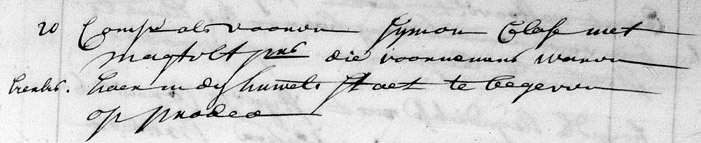 20 Comp. als vooren Symon Clasz met
magtelt pns die voornemens waren
haer in dy huwel. staet te begeven
op pro deo